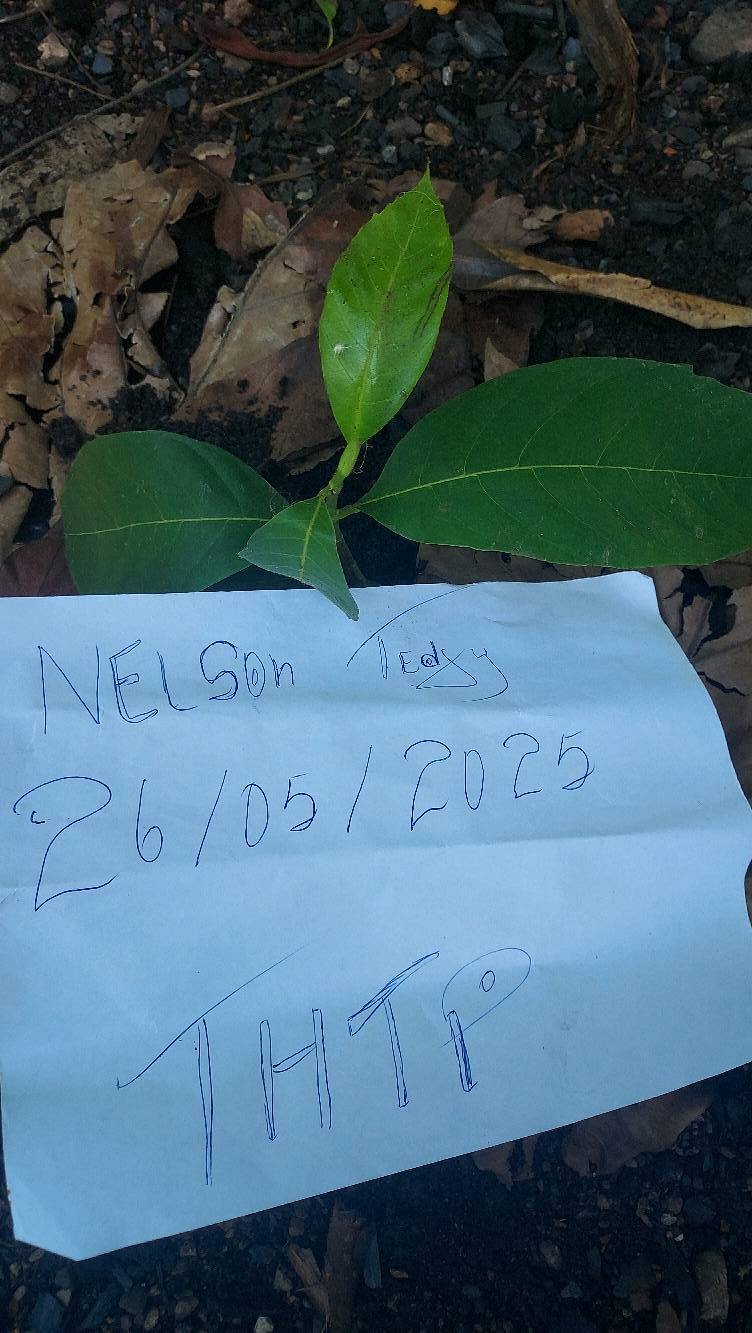 NELSon Tedyy
26/05/2025
THTP